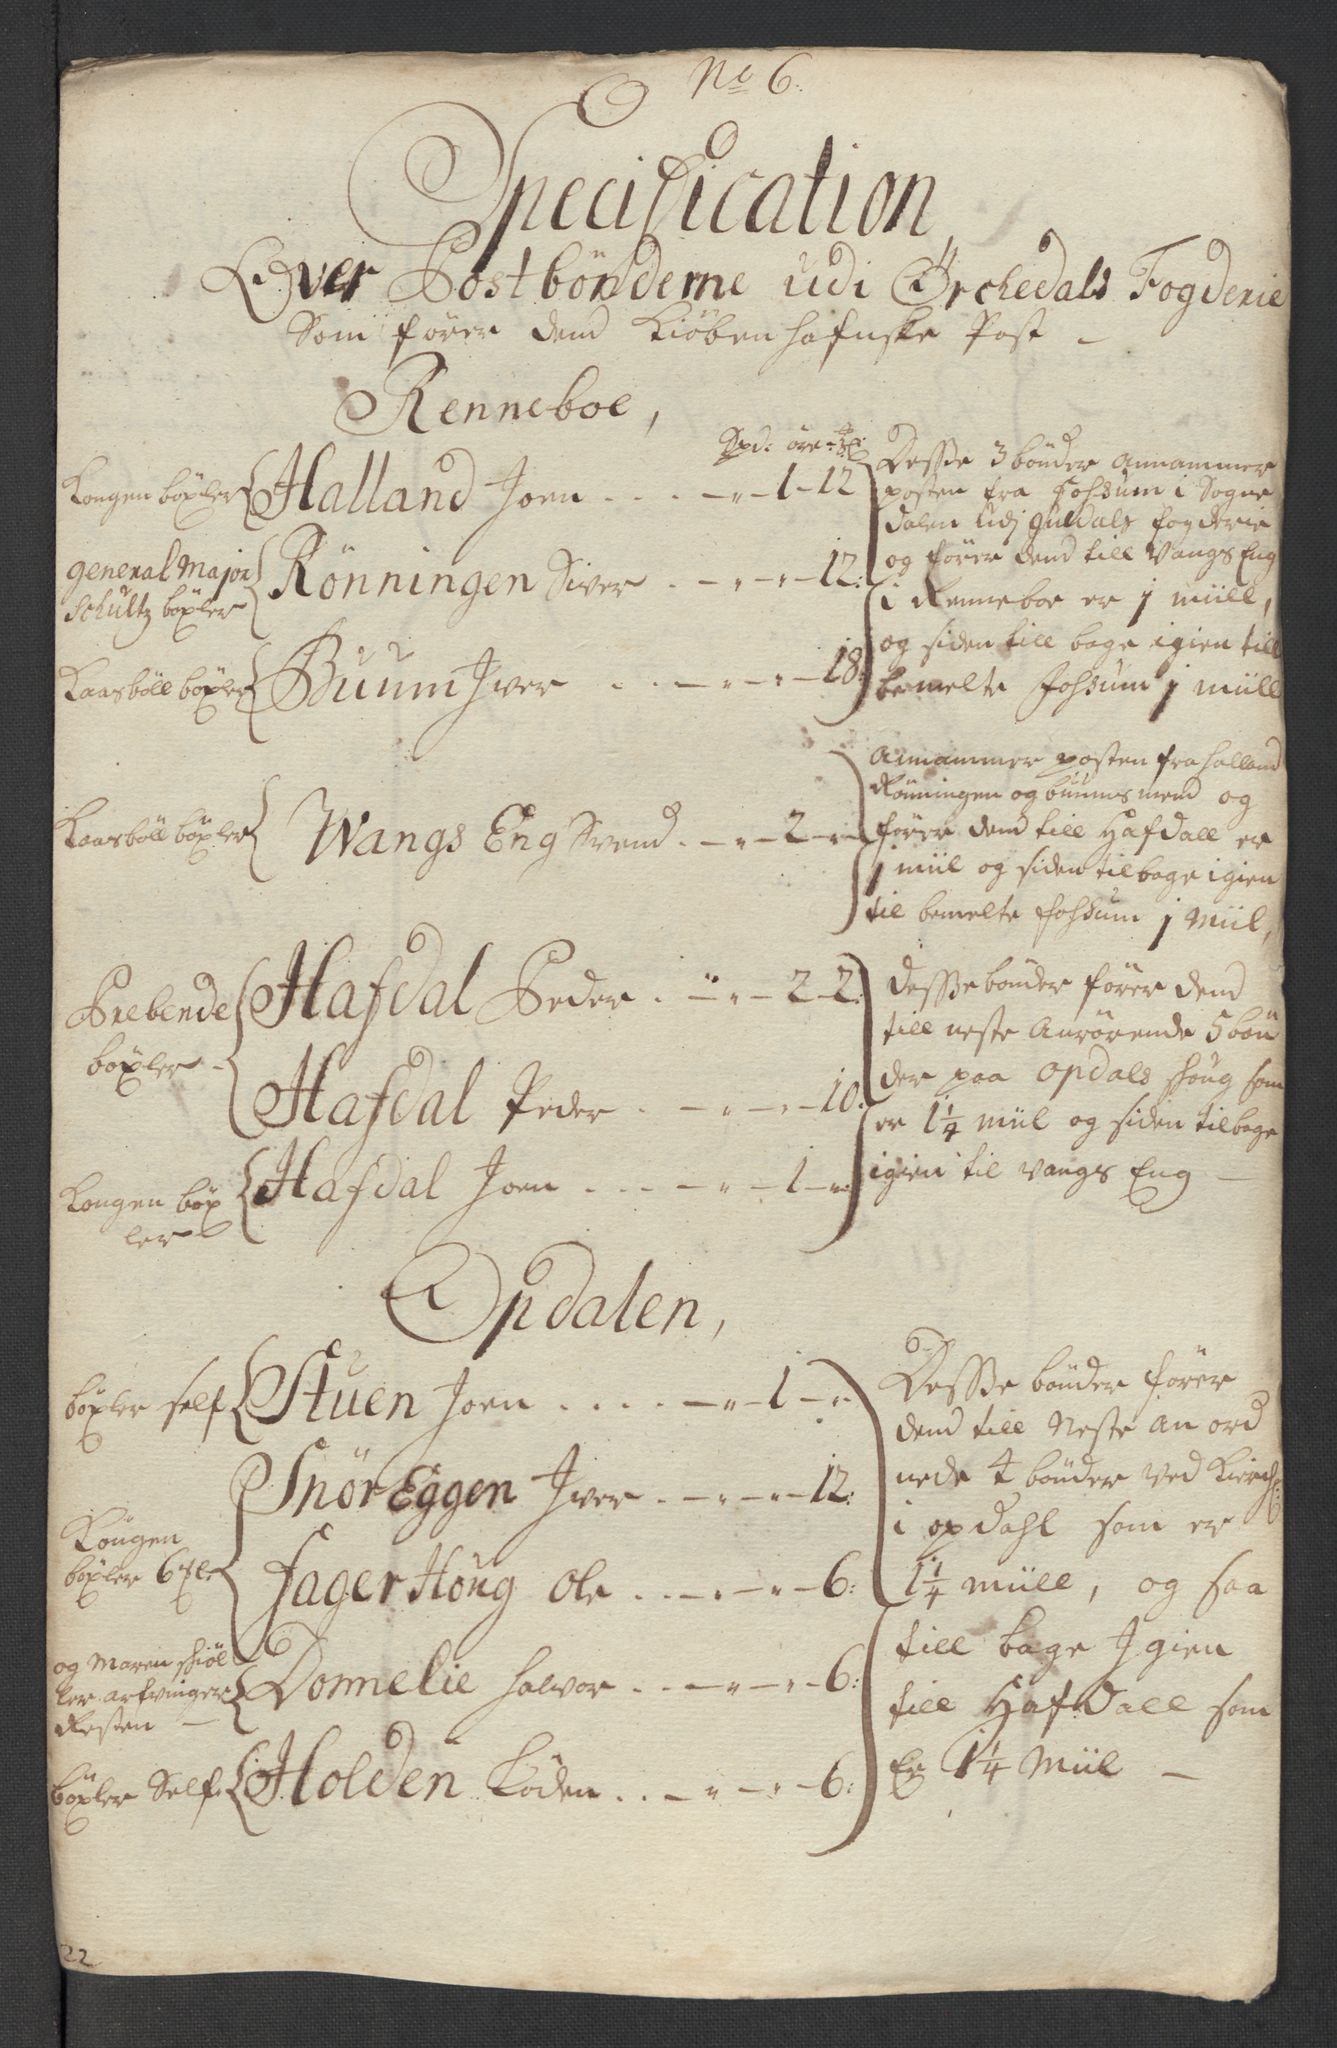 No 6.
Specification
Over Postbönderne udi Örckedals Fogderie
Som förer dend Kiöbenhafnske Post -
Renneboe,
Spd: öre: 
Kongen böxler Halland Joen . . . . - " - 1 - 12
general Major
Schultz böxler
Rönningen Siver . - " - " - 12:
Kaasböll böxler Buum Jver . . . - " - " - 18:
Desse 3 bönder annammer
posten fra Fossum i Sogne
dalen udj Guldals fogderie
og förer dend till Vangs Eng
i Renneboe er 1 miill,
og siden till bage igien till
bemelte Fossum 1 miill
Kaasböll böxler Wangs Eng Svend . - " - 2 - " -
Annammer posten fra Halland
Rönningen og buums mend og
förer dend till Hafdall er
1 miil og siden tilbage igien
til bemelte Fossum 1 Miil,
Prebende
böxler -
Hafdal Peder . - " - 2 - 2:
Hafdal Peder . - " - " - 10:
Kongen böx
ler
Hafdal Joen . . . - " - 1 - " -
Desse bönder förer dend
till neste Anrörende 5 bön
der paa Opdals skoug som
er 1 1/4 miil og siden tilbage
igien til Vangs Eng -
Opdalen,
böxler self Stuen Joen . . . . - " - 1 - "
Snör Eggen Jver . - " - " - 12:
Kongen
böxler 6
Jager Houg Ole . . - " - " - 6:
og Maren skiöl
ler arfvinger
Resten -
Donnelie Halvor . . - " - " - 6:
böxler Self. Holden Loden . . . - " - " - 6:
Desse bönder förer
dend till Neste an ord
nede 4 bönder ved Kirch:
i opdahl som er
1 1/4 miill, og saa
till bage Jgien
till Hafdall som
Er 1 1/4 Miil -
22